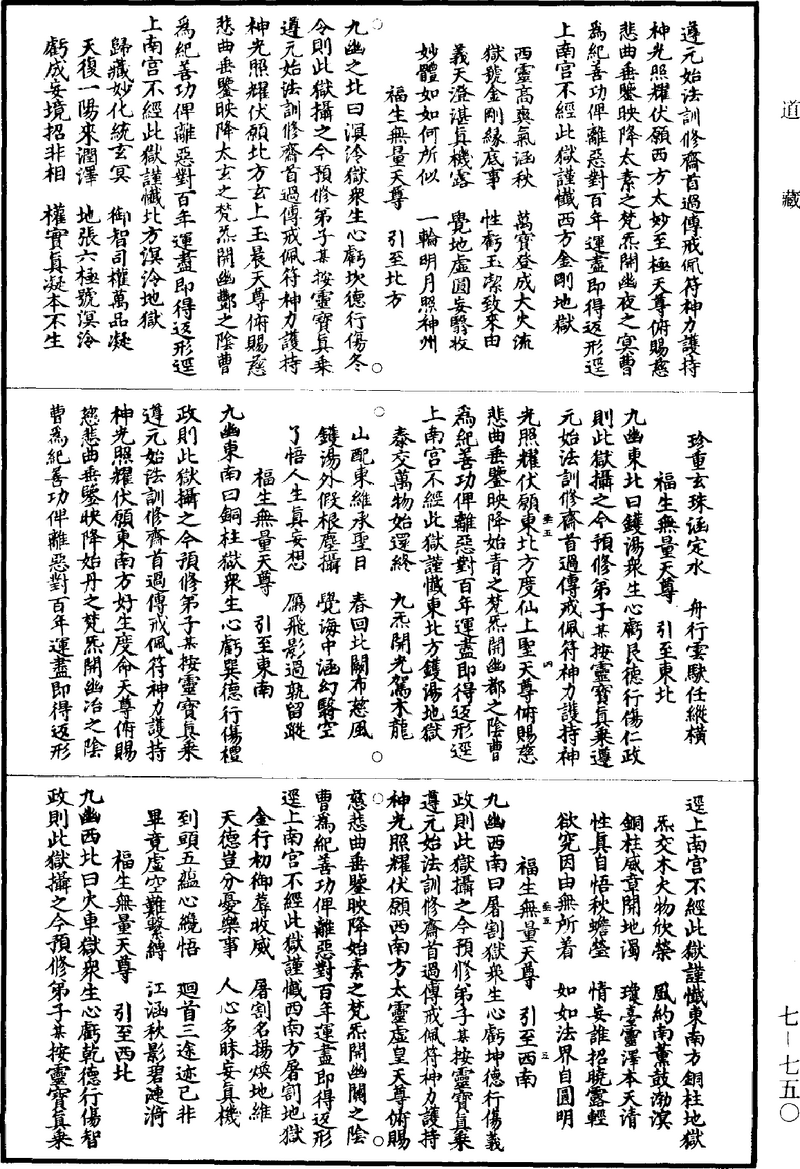 道藏
遵元始法訓修齋首過傳戒佩符神力護持
神光照耀伏願西方太妙至極天尊俯賜慈
悲曲垂鑒映降太素之梵炁開幽夜之冥曹
爲紀善功俾離惡對百年運盡即得返形逕
上南宮不經此獄謹懺西方金剛地獄
西靈高爽氣涵秋　萬寶登成大火流
獄號金剛緣底事　性虧玉潔致來由
義天澄湛真機露　覺地虛圓妄翳收
妙體如如何所似　一輪明月照神州
福生無量天尊　引至北方
九幽之北曰溟泠獄衆生心虧坎德行傷冬
令則此獄攝之今預修弟子某按靈寶真乘
遵元始法訓修齋首過傳戒佩符神力護持
神光照耀伏願北方玄上玉晨天尊俯賜慈
悲曲垂鑒映降太玄之梵炁開幽酆之陰曹
爲紀善功俾離惡對百年運盡即得返形逕
上南宮不經此獄謹懺北方溟泠地獄
歸藏妙化統玄冥　御智司權萬品凝
天復一陽來潤澤　地張六極號溟泠
虧成妄境招非相　權實真凝本不生
珍重玄珠涵定水　舟行雲駛任縱橫
福生無量天尊　引至東北
九幽東北曰鑊湯衆生心虧艮德行傷仁政
則此獄攝之今預修弟子某按靈寶真乘遵
元始法訓修齋首過傳戒佩符神力護持神
光照耀伏願東北方度仙上聖天尊俯賜慈
悲曲垂鑒映降始青之梵炁開幽都之陰曹
爲紀善功俾離惡對百年運盡即得返形逕
上南宮不經此獄謹懺東北方鑊湯地獄
泰交萬物始還終　九炁開光駕木龍
山配東維承聖日　春回北闕布慈風
鑊湯外假根塵攝　覺海中涵幻翳空
了悟人生真妄想　鴈飛影過孰留蹤
福生無量天尊　引至東南
九幽東南曰銅柱獄衆生心虧巽德行傷禮
政則此獄攝之今預修弟子某按靈寶真乘
遵元始法訓修齋首過傳戒佩符神力護持
神光照耀伏願東南方好生度命天尊俯賜
慈悲曲垂鑒映降始丹之梵炁開幽冶之陰
曹爲紀善功俾離惡對百年運盡即得返形
逕上南宮不經此獄謹懺東南方銅柱地獄
炁交木火物欣榮　風約南薰鼓渤溟
銅柱威章開地濁　瓊臺靈澤本天清
性真自悟秋蟾瑩　情妄誰招曉露輕
欲究因由無所着　如如法界自圓明
福生無量天尊　引至西南
九幽西南曰屠割獄衆生心虧坤德行傷義
政則此獄攝之今預修弟子某按靈寶真乘
遵元始法訓修齋首過傳戒佩符神力護持
神光照耀伏願西南方太靈虛皇天尊俯賜
慈悲曲垂鑒映降始素之梵炁開幽關之陰
曹爲紀善功俾離惡對百年運盡即得返形
逕上南宮不經此獄謹懺西南方屠割地獄
金行初御蓐收威　屠割名揚煥地維
天德豈分憂樂事　人心多昧妄真機
到頭五蘊心纔悟　廻首三途迹已非
畢竟虛空難繫縛　江涵秋影碧漣漪
福生無量天尊　引至西北
九幽西北曰火車獄衆生心虧乾德行傷智
政則此獄攝之今預修弟子某按靈寶真乘
七－七五〇